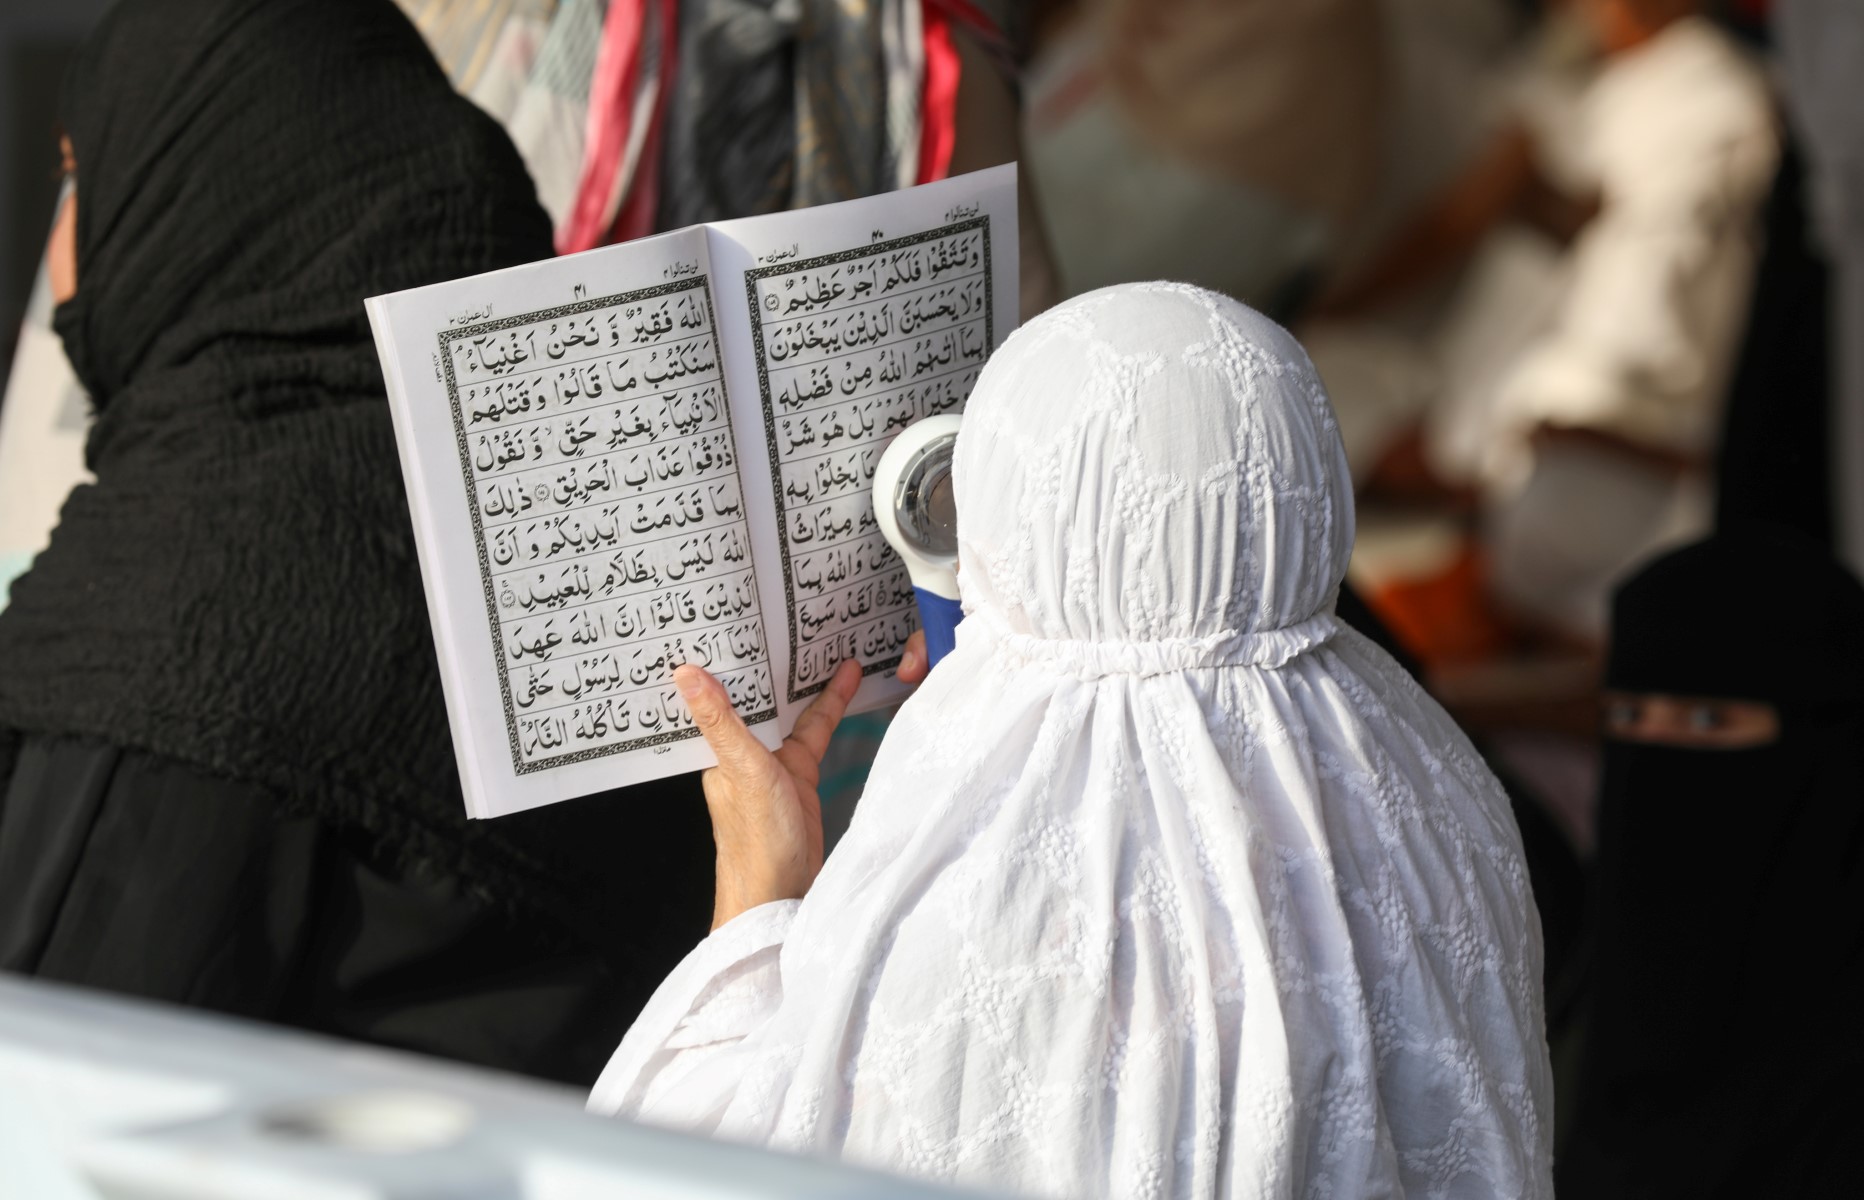 لن تنالوا ۴
۴۰
اٰل عمرٰن ۳
وَتَتَّقُوْا فَلَكُمْ اَجْرٌ عَظِيْمٌ ﴿۱۷۹﴾
وَلَا يَحْسَبَنَّ الَّذِيْنَ يَبْخَلُوْنَ
بِمَاۤ اٰتٰىهُمُ اللّٰهُ مِنْ فَضْلِهٖ
خَيْرًا لَّهُمْ ؕ بَلْ هُوَ شَرٌّ
مَا بَخِلُوْا بِهٖ
مِيْرَاثُ
وَاللّٰهُ بِمَا
لَقَدْ سَمِعَ
الَّذِيْنَ قَالُوْۤا اِنَّ
لن تنالوا ۴
۴۱
اٰل عمرٰن ۳
اللّٰهَ فَقِيْرٌ وَّ نَحْنُ اَغْنِيَآءُ ۘ
سَنَكْتُبُ مَا قَالُوْا وَقَتْلَهُمُ
الْاَنْۢبِيَآءَ بِغَيْرِ حَقٍّ ۙ وَّ نَقُوْلُ
ذُوْقُوْا عَذَابَ الْحَرِيْقِ ﴿۱۸۱﴾ ذٰلِكَ
بِمَا قَدَّمَتْ اَيْدِيْكُمْ وَ اَنَّ
اللّٰهَ لَيْسَ بِظَلَّامٍ لِّلْعَبِيْدِ ﴿۱۸۲﴾ۚ
اَلَّذِيْنَ قَالُوْۤا اِنَّ اللّٰهَ عَهِدَ
اِلَيْنَاۤ اَلَّا نُؤْمِنَ لِرَسُوْلٍ حَتّٰى
يَاْتِيَنَا بَانٍ تَاْكُلُهُ النَّارُ ؕ
منزل ۱